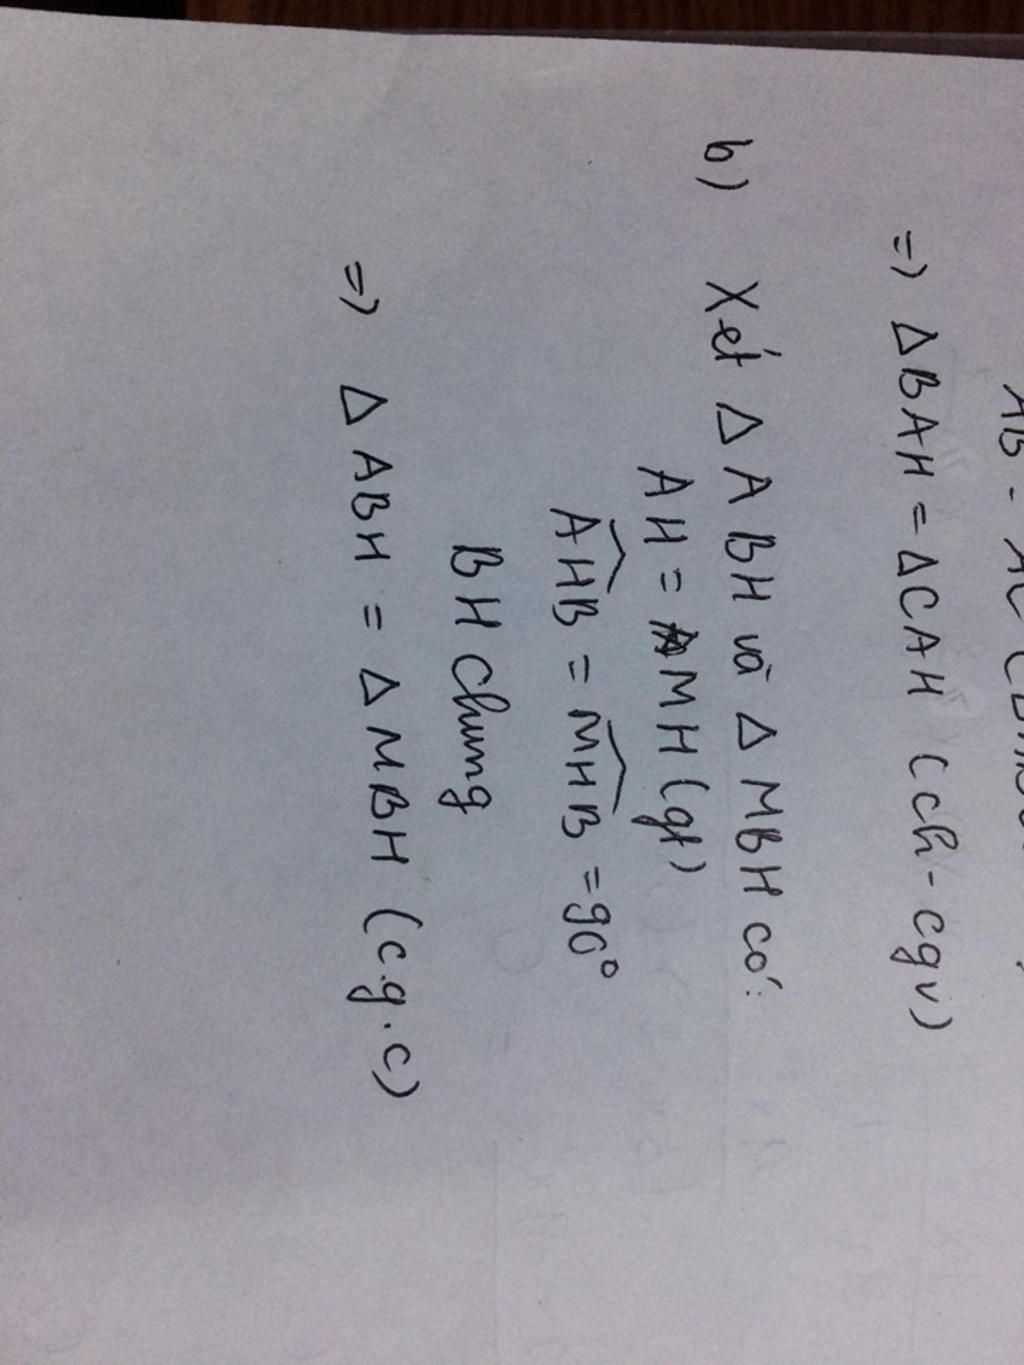 AB = AC
=) ΔBAH = ΔCAH (ch - cgv)
b) Xét Δ ABH và Δ MBH có:
AH = MH (gt)
AHB = MHB = 90°
BH chung
=) Δ ABH = Δ MBH (c.g.c)